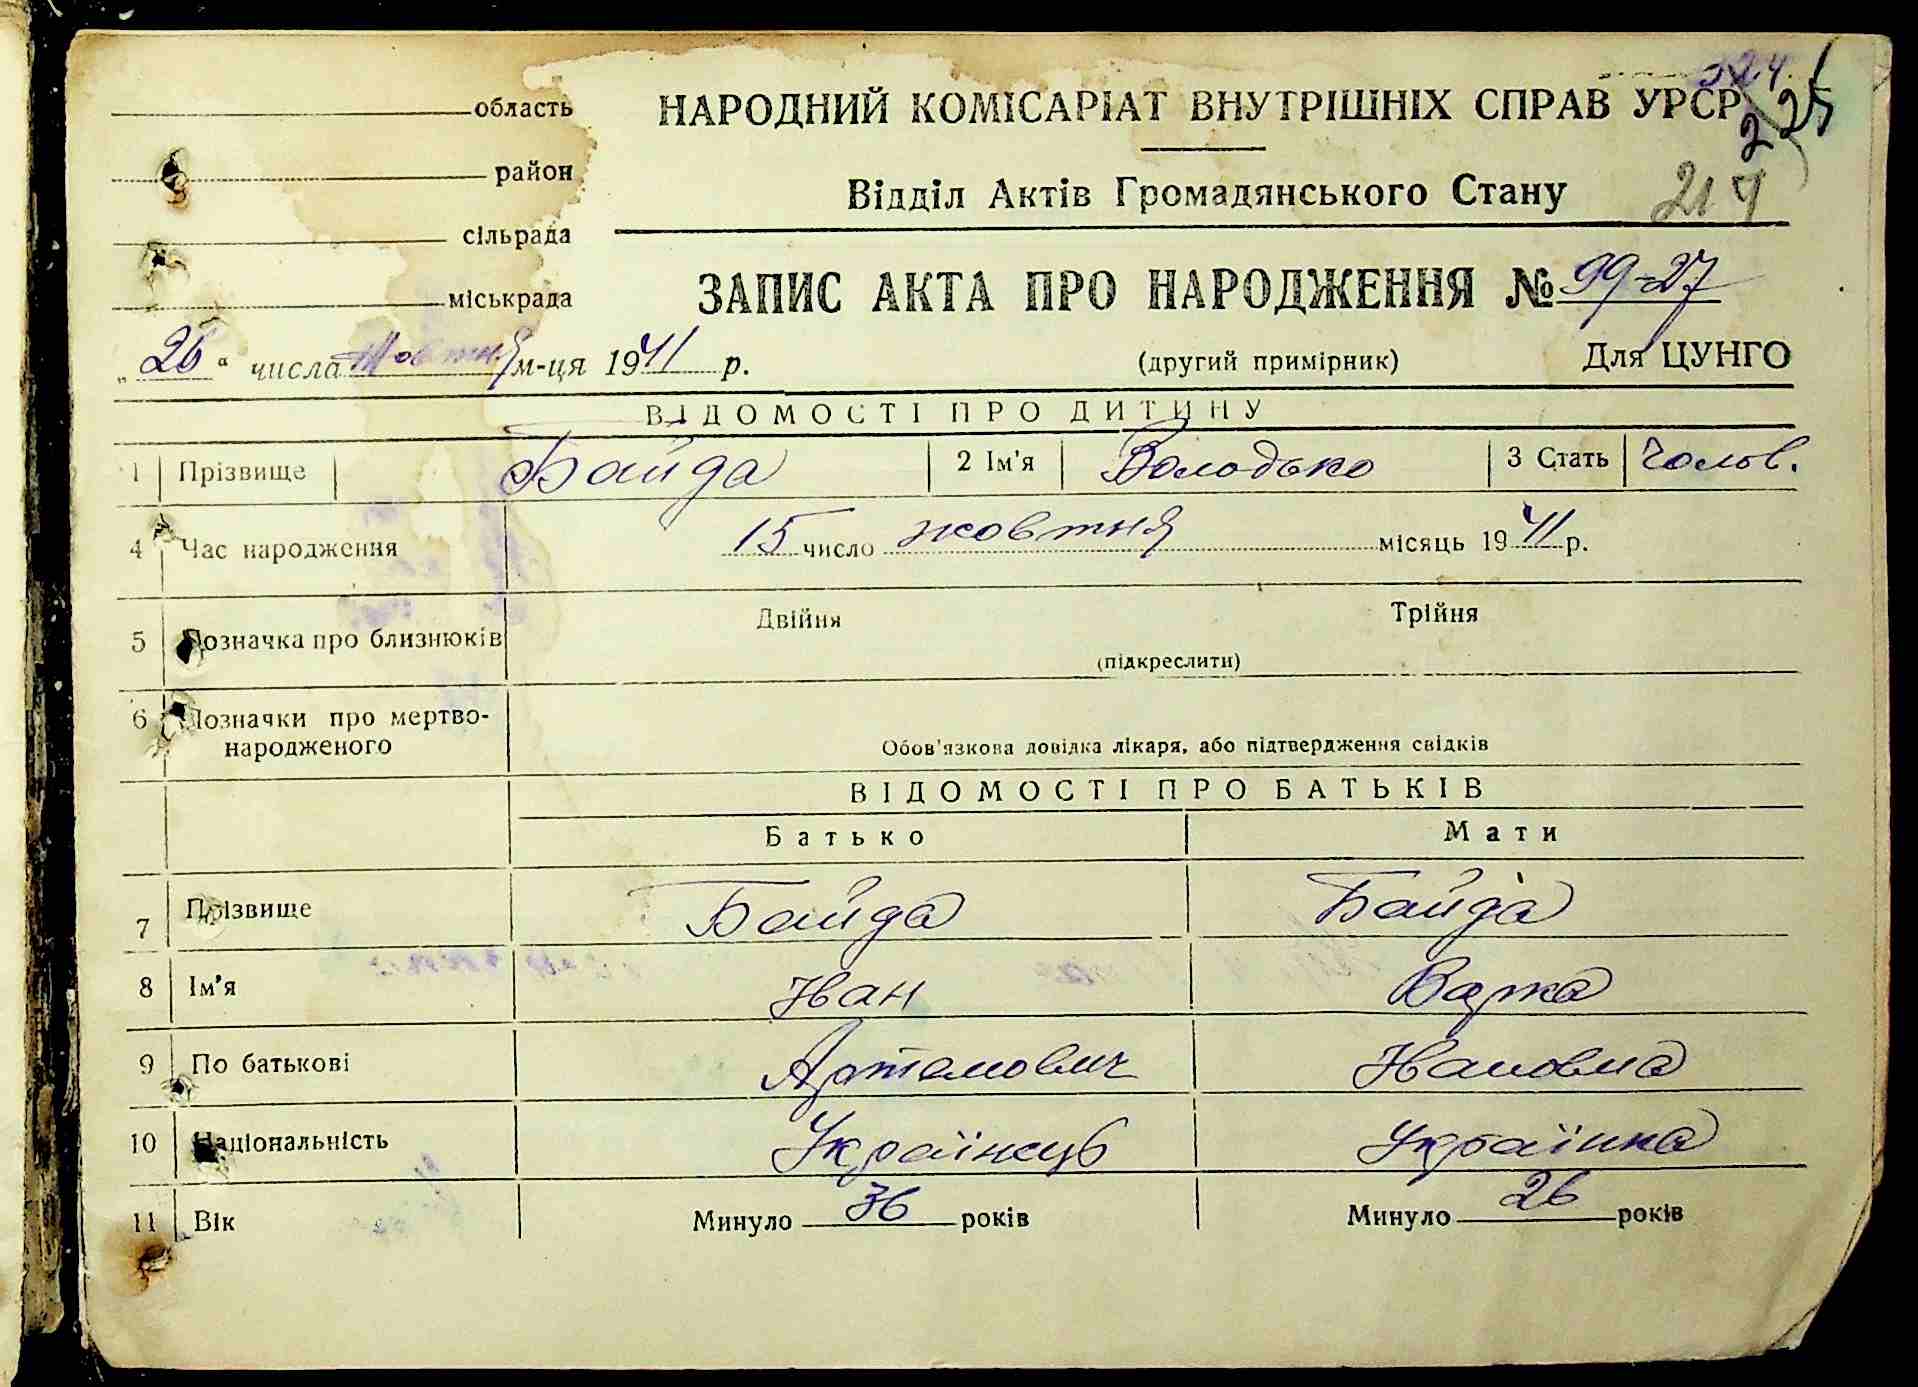 область
НАРОДНИЙ КОМІСАРІАТ ВНУТРІШНІХ СПРАВ УРСР
225
район
Відділ Актів Громадянського Стану
217
сільрада
міськрада
ЗАПИС АКТА ПРО НАРОДЖЕННЯ № 99-27
„26“ числа жовтня м-ця 1941 р.
(другий примірник)
Для ЦУНГО
ВІДОМОСТІ ПРО ДИТИНУ
1 Прізвище Байда 2 Ім'я Володько 3 Стать Чолов.
4 Час народження 15 число жовтня місяць 1941 р.
5 Позначка про близнюків Двійня Трійня
(підкреслити)
6 Позначки про мертво-
народженого
Обов'язкова довідка лікаря, або підтвердження свідків
ВІДОМОСТІ ПРО БАТЬКІВ
Батько Мати
7 Прізвище Байда Байда
8 Ім'я Іван Варка
9 По батькові Артемович Івановна
10 Національність Українець Українка
11 Вік Минуло 36 років Минуло 26 років